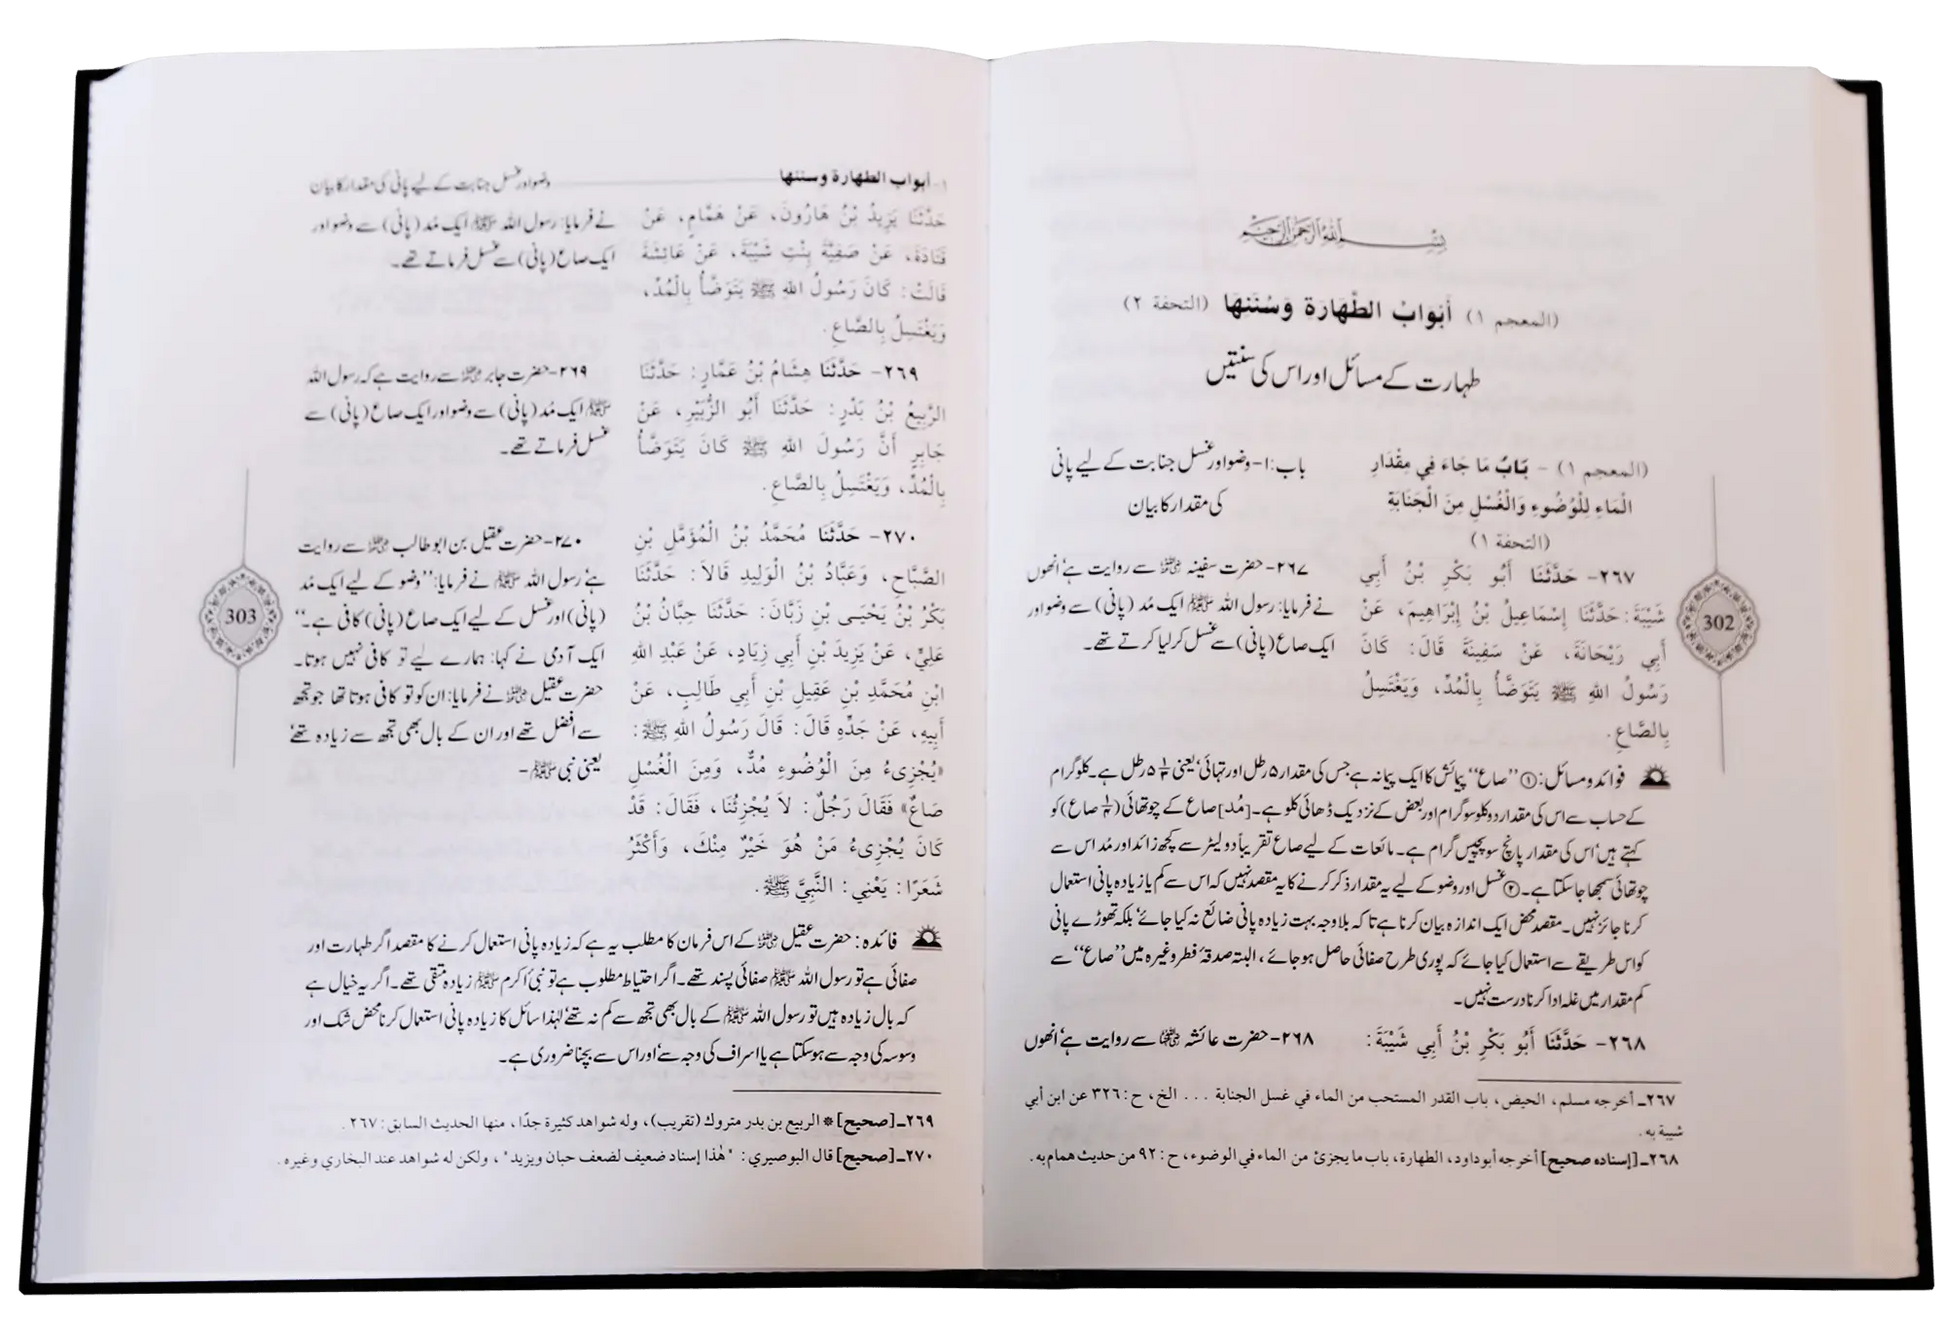 بِسْمِ اللهِ الرَّحْمٰنِ الرَّحِيْمِ
(المعجم ١) أَبْوَابُ الطَّهَارَةِ وَسُنَنِهَا (التحفة ٢)
طہارت کے مسائل اور اس کی سنتیں
(المعجم ١) - بَابُ مَا جَاءَ فِي مِقْدَارِ
الْمَاءِ لِلْوُضُوءِ وَالْغُسْلِ مِنَ الْجَنَابَةِ
(التحفة ١)
باب:۱- وضو اور غسل جنابت کے لیے پانی
کی مقدار کا بیان
٢٦٧- حَدَّثَنَا أَبُو بَكْرِ بْنُ أَبِي
شَيْبَةَ: حَدَّثَنَا إِسْمَاعِيلُ بْنُ إِبْرَاهِيمَ، عَنْ
أَبِي رَيْحَانَةَ، عَنْ سَفِينَةَ قَالَ: كَانَ
رَسُولُ اللهِ ﷺ يَتَوَضَّأُ بِالْمُدِّ، وَيَغْتَسِلُ
بِالصَّاعِ.
۲۶۷- حضرت سفینہ ؓ سے روایت ہے‘ انھوں
نے فرمایا: رسول اللہ ﷺ ایک مُد (پانی) سے وضو اور
ایک صاع (پانی) سے غسل کر لیا کرتے تھے۔
فوائد و مسائل: ① ’’صاع‘‘ پیمائش کا ایک پیمانہ ہے جس کی مقدار ۵ رطل اور تہائی‘ یعنی ۵ ۱/۳ رطل ہے۔ کلوگرام
کے حساب سے اس کی مقدار دو کلو سو گرام اور بعض کے نزدیک ڈھائی کلو ہے۔ [مُد] صاع کے چوتھائی (۱/۴ صاع) کو
کہتے ہیں‘ اس کی مقدار پانچ سو پچیس گرام ہے۔ مائعات کے لیے صاع تقریباً دو لیٹر سے کچھ زائد اور مُد اس سے
چوتھائی سمجھا جا سکتا ہے۔ ② غسل اور وضو کے لیے یہ مقدار ذکر کرنے کا یہ مقصد نہیں کہ اس سے کم یا زیادہ پانی استعمال
کرنا جائز نہیں۔ مقصد محض ایک اندازہ بیان کرنا ہے تاکہ بلاوجہ بہت زیادہ پانی ضائع نہ کیا جائے‘ بلکہ تھوڑے پانی
کو اس طریقے سے استعمال کیا جائے کہ پوری طرح صفائی حاصل ہو جائے، البتہ صدقۂ فطر وغیرہ میں ’’صاع‘‘ سے
کم مقدار میں غلہ ادا کرنا درست نہیں۔
٢٦٨- حَدَّثَنَا أَبُو بَكْرِ بْنُ أَبِي شَيْبَةَ:
۲۶۸- حضرت عائشہ ؓ سے روایت ہے‘ انھوں
٢٦٧ـ أخرجه مسلم، الحيض، باب القدر المستحب من الماء في غسل الجنابة . . . الخ، ح: ٣٢٦ عن ابن أبي
شيبة به.
٢٦٨ـ [إسناده صحيح] أخرجه أبوداود، الطهارة، باب ما يجزئ من الماء في الوضوء، ح: ٩٢ من حديث همام به.
302
١- أبواب الطهارة وسننها
وضو اور غسل جنابت کے لیے پانی کی مقدار کا بیان
حَدَّثَنَا يَزِيدُ بْنُ هَارُونَ، عَنْ هَمَّامٍ، عَنْ
قَتَادَةَ، عَنْ صَفِيَّةَ بِنْتِ شَيْبَةَ، عَنْ عَائِشَةَ
قَالَتْ: كَانَ رَسُولُ اللهِ ﷺ يَتَوَضَّأُ بِالْمُدِّ،
وَيَغْتَسِلُ بِالصَّاعِ.
نے فرمایا: رسول اللہ ﷺ ایک مُد (پانی) سے وضو اور
ایک صاع (پانی) سے غسل فرماتے تھے۔
٢٦٩- حَدَّثَنَا هِشَامُ بْنُ عَمَّارٍ: حَدَّثَنَا
الرَّبِيعُ بْنُ بَدْرٍ: حَدَّثَنَا أَبُو الزُّبَيْرِ، عَنْ
جَابِرٍ أَنَّ رَسُولَ اللهِ ﷺ كَانَ يَتَوَضَّأُ
بِالْمُدِّ، وَيَغْتَسِلُ بِالصَّاعِ.
۲۶۹- حضرت جابر ؓ سے روایت ہے کہ رسول اللہ
ﷺ ایک مُد (پانی) سے وضو اور ایک صاع (پانی) سے
غسل فرماتے تھے۔
٢٧٠- حَدَّثَنَا مُحَمَّدُ بْنُ الْمُؤَمَّلِ بْنِ
الصَّبَّاحِ، وَعَبَّادُ بْنُ الْوَلِيدِ قَالَا: حَدَّثَنَا
بَكْرُ بْنُ يَحْيَـى بْنِ زَبَّانَ: حَدَّثَنَا حِبَّانُ بْنُ
عَلِيٍّ، عَنْ يَزِيدَ بْنِ أَبِي زِيَادٍ، عَنْ عَبْدِ اللهِ
ابْنِ مُحَمَّدِ بْنِ عَقِيلِ بْنِ أَبِي طَالِبٍ، عَنْ
أَبِيهِ، عَنْ جَدِّهِ قَالَ: قَالَ رَسُولُ اللهِ ﷺ:
«يُجْزِىءُ مِنَ الْوُضُوءِ مُدٌّ، وَمِنَ الْغُسْلِ
صَاعٌ» فَقَالَ رَجُلٌ: لَا يُجْزِئُنَا، فَقَالَ: قَدْ
كَانَ يُجْزِىءُ مَنْ هُوَ خَيْرٌ مِنْكَ، وَأَكْثَرُ
شَعَرًا: يَعْنِي: النَّبِيَّ ﷺ.
۲۷۰- حضرت عقیل بن ابو طالب ؓ سے روایت
ہے‘ رسول اللہ ﷺ نے فرمایا: ’’وضو کے لیے ایک مُد
(پانی) اور غسل کے لیے ایک صاع (پانی) کافی ہے۔‘‘
ایک آدمی نے کہا: ہمارے لیے تو کافی نہیں ہوتا۔
حضرت عقیل ؓ نے فرمایا: ان کو تو کافی ہوتا تھا جو تجھ
سے افضل تھے اور ان کے بال بھی تجھ سے زیادہ تھے‘
یعنی نبی ﷺ ۔
فائدہ: حضرت عقیل ؓ کے اس فرمان کا مطلب یہ ہے کہ زیادہ پانی استعمال کرنے کا مقصد اگر طہارت اور
صفائی ہے تو رسول اللہ ﷺ صفائی پسند تھے۔ اگر احتیاط مطلوب ہے تو نبیٔ اکرم ﷺ زیادہ متقی تھے۔ اگر یہ خیال ہے
کہ بال زیادہ ہیں تو رسول اللہ ﷺ کے بال بھی تجھ سے کم نہ تھے‘ لہٰذا سائل کا زیادہ پانی استعمال کرنا محض شک اور
وسوسہ کی وجہ سے ہو سکتا ہے یا اسراف کی وجہ سے‘ اور اس سے بچنا ضروری ہے۔
٢٦٩ـ [صحيح] * الربيع بن بدر متروك (تقريب)، وله شواهد كثيرة جدًا، منها الحديث السابق: ٢٦٧.
٢٧٠ـ [صحيح] قال البوصيري: "هٰذا إسناد ضعيف لضعف حبان ويزيد"، ولكن له شواهد عند البخاري وغيره.
303